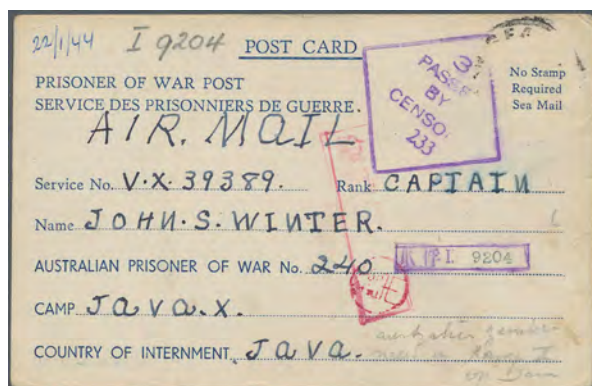 22/1/44 I 9204 POST CARD
3
PASSED
BY
CENSOR
233
No Stamp
Required
Sea Mail
PRISONER OF WAR POST
SERVICE DES PRISONNIERS DE GUERRE.
AIR. MAIL
Service No. V.X. 39389. Rank CAPTAIN
Name JOHN.S. WINTER.
AUSTRALIAN PRISONER OF WAR No. 240
I. 9204
CAMP JAVA.X.
COUNTRY OF INTERNMENT JAVA.